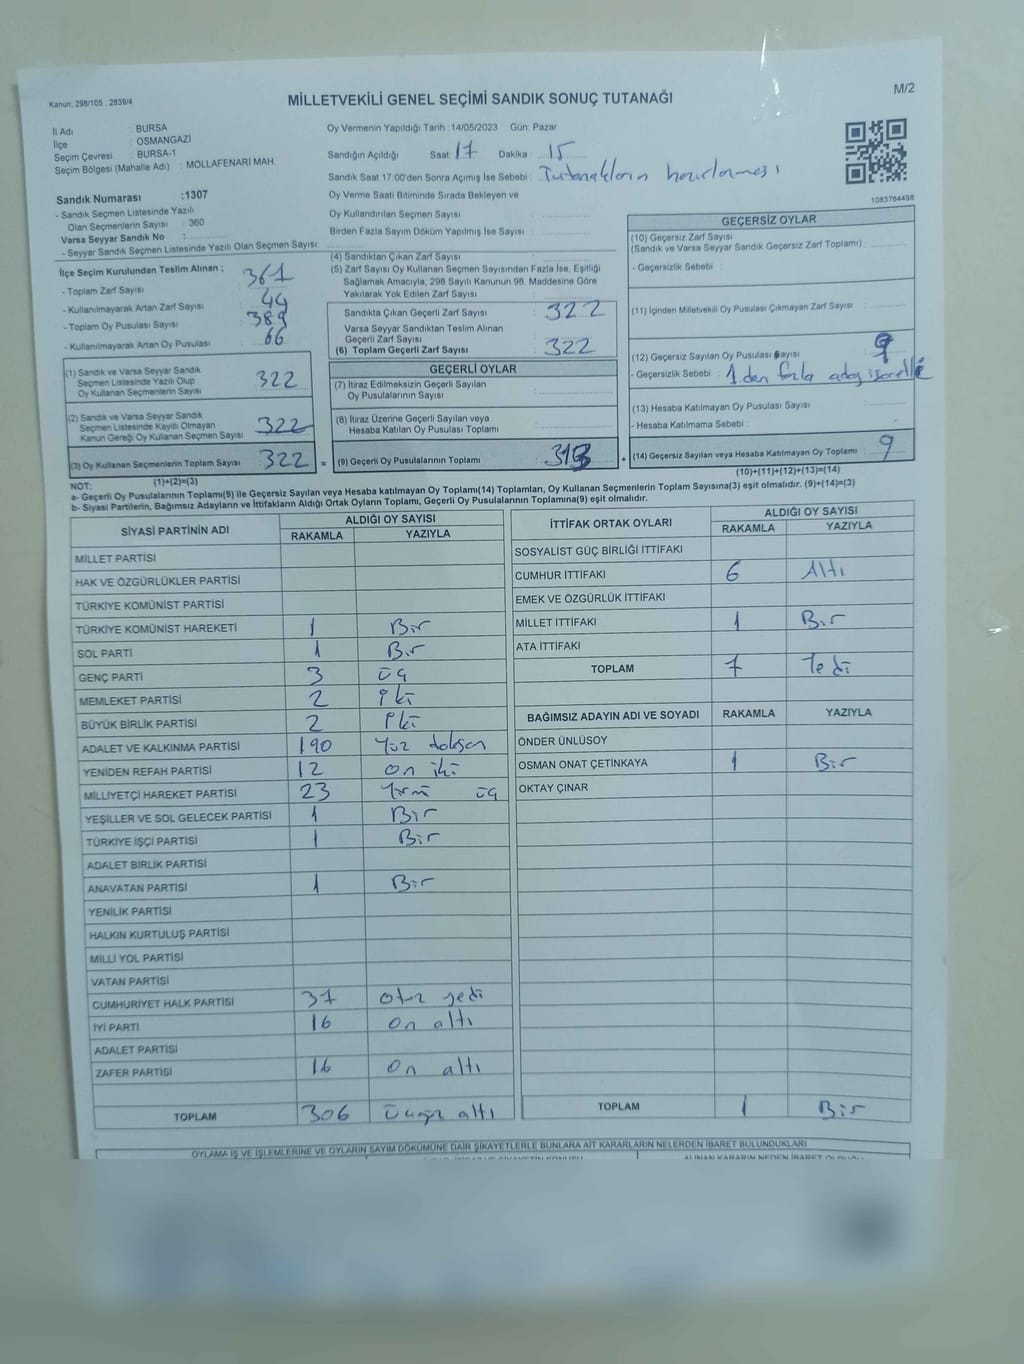 Kanun: 298/105 , 2839/4
MİLLETVEKİLİ GENEL SEÇİMİ SANDIK SONUÇ TUTANAĞI
M/2
İl Adı : BURSA
İlçe : OSMANGAZİ
Seçim Çevresi : BURSA-1
Seçim Bölgesi (Mahalle Adı) : MOLLAFENARİ MAH.
Oy Vermenin Yapıldığı Tarih :14/05/2023 Gün: Pazar
Sandığın Açıldığı Saat: 17 Dakika : 15
Sandık Saat 17.00'den Sonra Açımış İse Sebebi : Tutanakların hazırlanması
1083764498
Sandık Numarası :1307
- Sandık Seçmen Listesinde Yazılı
Olan Seçmenlerin Sayısı : 360
Varsa Seyyar Sandık No :
- Seyyar Sandık Seçmen Listesinde Yazılı Olan Seçmen Sayısı:
Oy Verme Saati Bitiminde Sırada Bekleyen ve
Oy Kullandırılan Seçmen Sayısı
Birden Fazla Sayım Döküm Yapılmış İse Sayısı
İlçe Seçim Kurulundan Teslim Alınan ;
- Toplam Zarf Sayısı 361
- Kullanılmayarak Artan Zarf Sayısı 44
- Toplam Oy Pusulası Sayısı 389
- Kullanılmayarak Artan Oy Pusulası 66
(4) Sandıktan Çıkan Zarf Sayısı
(5) Zarf Sayısı Oy Kullanan Seçmen Sayısından Fazla İse, Eşitliği
Sağlamak Amacıyla, 298 Sayılı Kanunun 98. Maddesine Göre
Yakılarak Yok Edilen Zarf Sayısı :
Sandıkta Çıkan Geçerli Zarf Sayısı : 322
Varsa Seyyar Sandıktan Teslim Alınan
Geçerli Zarf Sayısı
(6) Toplam Geçerli Zarf Sayısı 322
(1) Sandık ve Varsa Seyyar Sandık
Seçmen Listesinde Yazılı Olup
Oy Kullanan Seçmenlerin Sayısı 322
(2) Sandık ve Varsa Seyyar Sandık
Seçmen Listesinde Kayıtlı Olmayan
Kanun Gereği Oy Kullanan Seçmen Sayısı 322
(3) Oy Kullanan Seçmenlerin Toplam Sayısı 322 =
(1)+(2)=(3)
GEÇERLİ OYLAR
(7) İtiraz Edilmeksizin Geçerli Sayılan
Oy Pusulalarının Sayısı
(8) İtiraz Üzerine Geçerli Sayılan veya
Hesaba Katılan Oy Pusulası Toplamı
(9) Geçerli Oy Pusulalarının Toplamı 313 +
GEÇERSİZ OYLAR
(10) Geçersiz Zarf Sayısı
(Sandık ve Varsa Seyyar Sandık Geçersiz Zarf Toplamı) :
- Geçersizlik Sebebi :
(11) İçinden Milletvekili Oy Pusulası Çıkmayan Zarf Sayısı
(12) Geçersiz Sayılan Oy Pusulası Sayısı 9
- Geçersizlik Sebebi : 1 den fazla aday
(13) Hesaba Katılmayan Oy Pusulası Sayısı
- Hesaba Katılmama Sebebi :
(14) Geçersiz Sayılan veya Hesaba Katılmayan Oy Toplamı 9
(10)+(11)+(12)+(13)=(14)
NOT:
a- Geçerli Oy Pusulalarının Toplamı(9) ile Geçersiz Sayılan veya Hesaba katılmayan Oy Toplamı(14) Toplamları, Oy Kullanan Seçmenlerin Toplam Sayısına(3) eşit olmalıdır. (9)+(14)=(3)
b- Siyasi Partilerin, Bağımsız Adayların ve İttifakların Aldığı Ortak Oyların Toplamı, Geçerli Oy Pusulalarının Toplamına(9) eşit olmalıdır.
SİYASİ PARTİNİN ADI ALDIĞI OY SAYISI
RAKAMLA YAZIYLA
MİLLET PARTİSİ
HAK VE ÖZGÜRLÜKLER PARTİSİ
TÜRKİYE KOMÜNİST PARTİSİ
TÜRKİYE KOMÜNİST HAREKETİ 1 Bir
SOL PARTİ 1 Bir
GENÇ PARTİ 3 üç
MEMLEKET PARTİSİ 2 iki
BÜYÜK BİRLİK PARTİSİ 2 iki
ADALET VE KALKINMA PARTİSİ 190 Yüz doksan
YENİDEN REFAH PARTİSİ 12 on iki
MİLLİYETÇİ HAREKET PARTİSİ 23 Yirmi üç
YEŞİLLER VE SOL GELECEK PARTİSİ 1 Bir
TÜRKİYE İŞÇİ PARTİSİ 1 Bir
ADALET BİRLİK PARTİSİ
ANAVATAN PARTİSİ 1 Bir
YENİLİK PARTİSİ
HALKIN KURTULUŞ PARTİSİ
MİLLİ YOL PARTİSİ
VATAN PARTİSİ
CUMHURİYET HALK PARTİSİ 37 otuz yedi
İYİ PARTİ 16 on altı
ADALET PARTİSİ
ZAFER PARTİSİ 16 On altı
TOPLAM 306 altı
İTTİFAK ORTAK OYLARI ALDIĞI OY SAYISI
RAKAMLA YAZIYLA
SOSYALİST GÜÇ BİRLİĞİ İTTİFAKI
CUMHUR İTTİFAKI 6 Altı
EMEK VE ÖZGÜRLÜK İTTİFAKI
MİLLET İTTİFAKI 1 Bir
ATA İTTİFAKI
TOPLAM 7 Yedi
BAĞIMSIZ ADAYIN ADI VE SOYADI RAKAMLA YAZIYLA
ÖNDER ÜNLÜSOY
OSMAN ONAT ÇETİNKAYA 1 Bir
OKTAY ÇINAR
TOPLAM 1 Bir
OYLAMA İŞ VE İŞLEMLERİNE VE OYLARIN SAYIM DÖKÜMÜNE DAİR ŞİKAYETLERLE BUNLARA AİT KARARLARIN NELERDEN İBARET BULUNDUKLARI